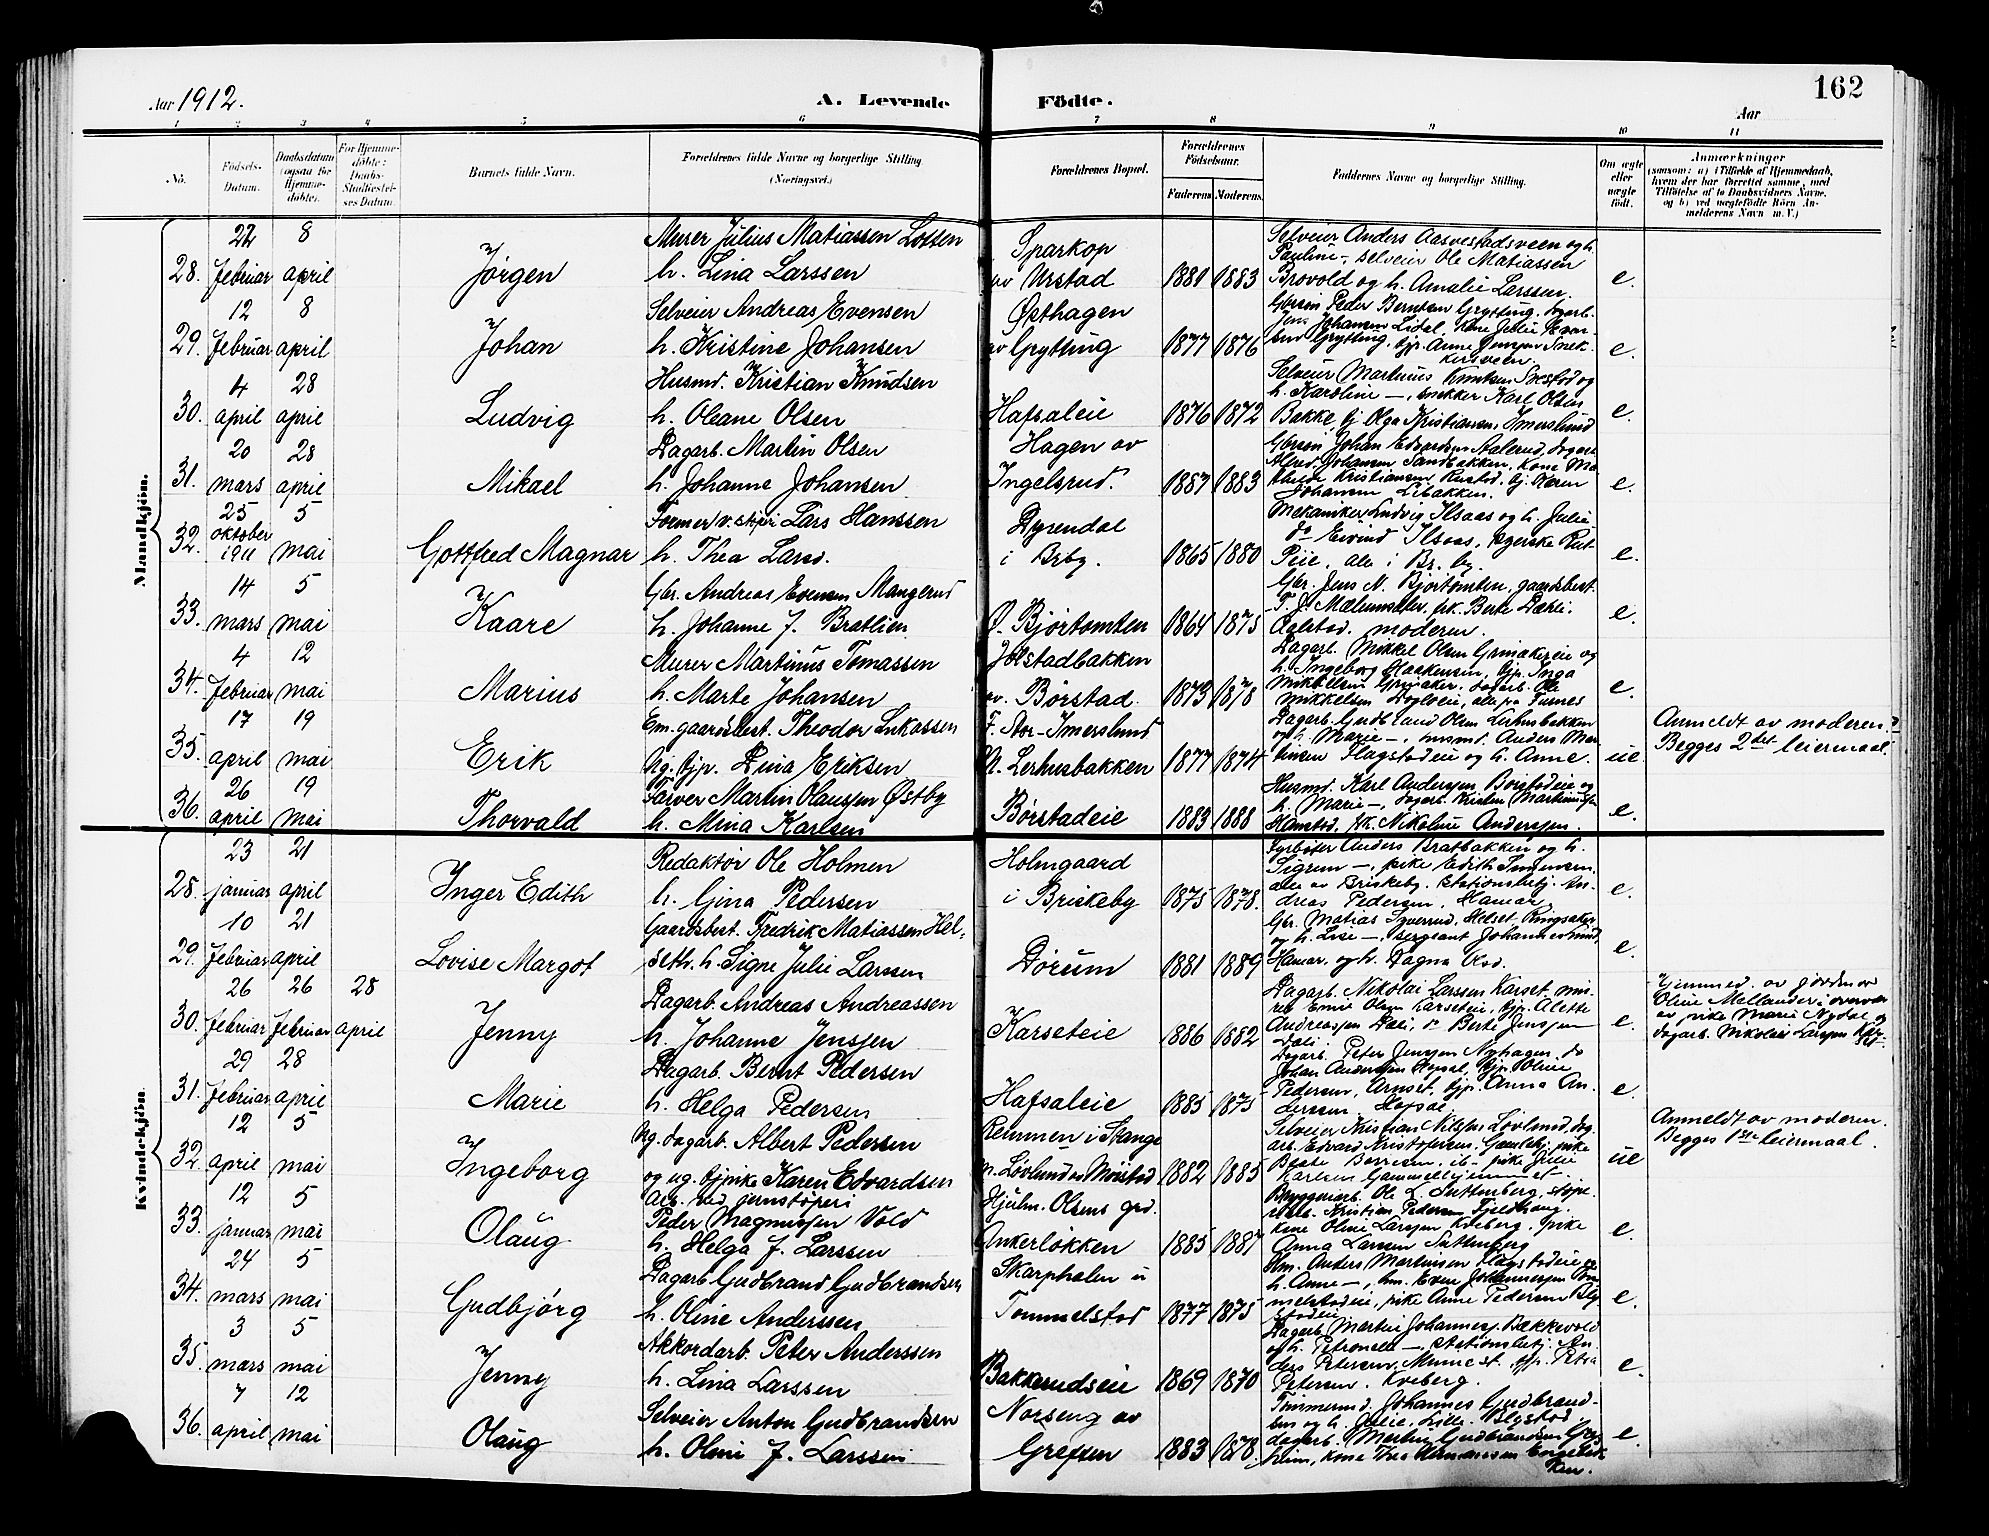 162
Aar 1912.
A. Levende Födte.
Aar
1 2 3 4 5 6 7 8 9 10 11
No.
Födsels-Datum.
Daabsdatum (ogsaa for Hjemme-døbte).
For Hjemme-døbte: Daabs-Stadfæstelses Datum.
Barnets fulde Navn.
Forældrenes fulde Navne og borgerlige Stilling (Næringsvei.)
Forældrenes Bopæl.
Forældrenes Födselsaar.
Faderens
Moderens
Faddernes Navne og borgerlige Stilling.
Om ægte eller uægte født.
Anmærkninger
(saasom: a) i Tilfælde af Hjemmedaab,
hvem der har forrettet samme, med
Tilføielse af to Daabsvidners Navne.
og b) ved uægtefødte Börn An-
melderens Navn m. V.)
Mandkjön.
28. 22 Februar 8 april Jörgen
Murer Julius Matiassen Lotten
h. Lina Larssen
Sparkop
av Urstad
1881 1883
Selveier Anders Aasvestadsveen og h.
Pauline —, selveier Ole Matiassen
Brovold og h. Amalie Larssen.
e.
29. 12 Februar 8 april Johan
Selveier Andreas Evensen
h. Kristine Johansen
Østhagen
av Grytting
1877 1876
Peder Berntsen Grytting,
Johansen Lidal, Kone Julie
Grytting, tjp. Anne Jensen Snek-
kersveen.
e.
30. 4 april 28 april Ludvig
Husmd. Kristian Knudsen
h. Oleane Olsen
Hafsaleie
1876 1872
Selveier Martinus Knutsen og
h. Karoline —, snekker Karl Olsen
Bakke, tj Olga Kristiansen, Imerslund
e.
31. 20 mars 28 april Mikael
Dagarb. Martin Olsen
h. Johanne Johansen
Hagen av
Ingelsrud.
1887 1883
Johan Edvardsen Aalerud, dagarb.
Alfred Johansen Sandbakken, Kone
Kristiansen Rustad, tj. Karen
Johansen Libakken.
e.
32. 25 oktober 1911 5 mai Gottfred Magnar
Former v. Lars Hanssen
h. Thea Larsd.
Dyrendal
i Brby.
1865 1880
Mekaniker Ludvig Ilsaas og h. Julie
do Eivind Ilsaas,
alle i Br. by.
e.
33. 14 mars 5 mai Kaare
Gbr. Andreas Evensen Mangerud
h. Johanne J. Bratlien
Ø. Bjørtomten
1864 1875
Gbr. Jens N. Bjørtomten, gaardsbest.
T. J. Mælumsæter, pk. Berte Dæhli.
moderen.
e.
34. 4 Februar 12 mai Marius
Murer Martinus Tomassen
h. Marte Johansen
Jølstadbakken
av Børstad.
1873 1878
Dagarb. Mikkel Olsen og
h. Ingeborg Haakensen, tjp. Inga
Mikkelsen dagarb. Ole
Mikkelsen alle fra Furnes
e.
35. 17 april 19 mai Erik
Em. gaardsbest. Theodor Lukassen
Ug. tjp. Dina Eriksen
F. Stor-Imerslund
M. Lerhusbakken
1877 1874
Dagarb. Gudbrand Olsen Lerhusbakken
og h. Marie —, husmd. Anders Mar-
tinsen Flagstadeie og h. Anne.
ue.
Anmeldt av moderen.
Begges 2det leiermaal.
36. 26 april 19 mai Thorvald
Farver Martin Olaussen Østby
h. Mina Karlsen
Børstadeie
1883 1888
Husmd. Karl Andersen Børstadeie og
h. Marie —, dagarb. Kristen Martinussen
Hamstad, pk. Nikoline Anderssen.
e.
Kvindekjön
28. 23 januar 21 april Inger Edith
Redaktør Ole Holmen
h. Gina Pedersen
Holmgaard
i Briskeby
1875 1878.
Fyrbøter Anders Bratbakken og h.
Sigrun —, pike Edith
alle av Briskeby. Stationsbetj. An-
dreas Pedersen, Hamar.
e.
29. 10 Februar 21 april Lovise Margot
Gaardsbest. Fredrik Matiassen Hel-
seth. h. Signe Julie Larssen
Dørum
1881 1889
Gbr. Matias Helset Ringsaker
og h. Lise —, sergeant
Hamar. og h. Dagna Olsd.
e.
30. 26 Februar 26 Februar 28 april Jenny
Dagarb. Andreas Andreassen
h. Johanne Jenssen
Karseteie
1886 1882
Dagarb. Nikolai Larssen Karset, mu-
rer Emil Olsen Karseteie, tjp. Alette
Andreassen Dæli, do Berte Jenssen
Dæli.
e.
Hjemmed. av jordmor
Oline Mellander i overvær
av pike Marie Nydal og
dagarb. Nikolai Larssen Kar-
set.
31. 29 Februar 28 april Marie
Dagarb. Bernt Pedersen
h. Helga Pedersen
Hafsaleie
1885 1875
Dagarb. Peter Jenssen Nyhagen, do
Johan Anderssen Hafsal, tjp. Oline
Pedersen, Arnset, tjp. Anna An-
derssen, Hafsal.
e.
32. 12 april 5 mai Ingeborg
Ug. dagarb. Albert Pedersen
og ug. tjpike Karen Edvardsen
Remmen i Stange
n. Løvlund av Mostad
1882 1885
Selveier Kristian Nilsen Lovlund, dag-
arb. Edvard Kristofersen, pike
Beate Berntsen, pike Julie
Karlsen Gammelhjemmet
ue
Anmeldt av moderen.
Begges 1ste leiermaal.
33. 12 januar 5 mai Olaug
Arb. ved jernstøperi
Peder Magnussen Vold
h. Helga J. Larssen
Hjulm. Olsens grd.
Ankerløkken
1885 1887
Bryggeriarb. Ole L. Suttenberg, støpe-
riarb. Kristian Pedersen Fjeldhaug,
kone Oline Larssen Kveberg, pike
Anna Larssen Suttenberg
e.
34. 24 mars 5 mai Gudbjørg
Dagarb. Gudbrand Gudbrandsen
h. Oline Anderssen
Skarphalen u
Tommelstad
1877 1875
Hm. Anders Martinsen Flagstadeie og
h. Anne —, hm. Even Johannessen Tom-
melstadeie, pike Anne Pedersen Bly-
stadeie
e.
35. 3 mars 5 mai Jenny
Akkordarb. Peter Anderssen
h. Lina Larssen
Bakkerudseie
1869 1870
Dagarb. Martin Johannes. Bækkevold
og h. Petronelle —, Stationsbetj. An-
ders Petersen, tjp. Petra
Petersen. Kveberg.
e.
36. 7 april 12 mai Olaug
Selveier Anton Gudbrandsen
h. Oline J. Larssen
Norseng av
Grefsen
1883 1878.
Tømmermd. Johannes Gudbrand-
sen og h. Julie, Lille Blystad,
dagarb. Martin Gudbrandsen
kone Thea Hermanssen Engebak-
ken.
e.